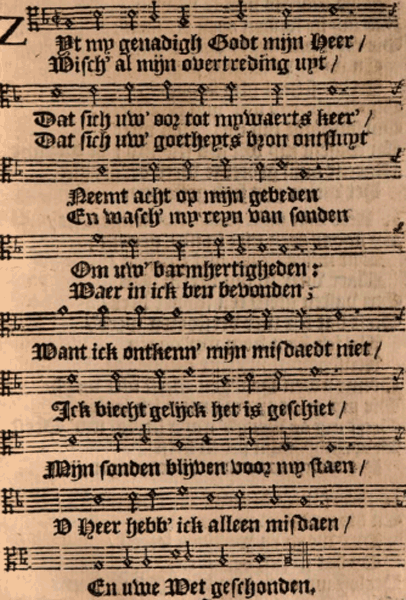 Zyt my genadigh Godt mijn Heer /
Wisch' al mijn overtreding uyt /
Dat sich uw' oor tot mywaerts keer' /
Dat sich uw' goetheyts bron ontsluyt
Neemt acht op mijn gebeden
En wasch' my reyn van sonden
Om uw' barmhertigheden :
Waer in ick ben bevonden ;
Want ick ontkenn' mijn misdaedt niet /
Ick biecht gelijck het is geschiet /
Mijn sonden blijven voor my staen /
O Heer hebb' ick alleen misdaen /
En uwe Wet geschonden.